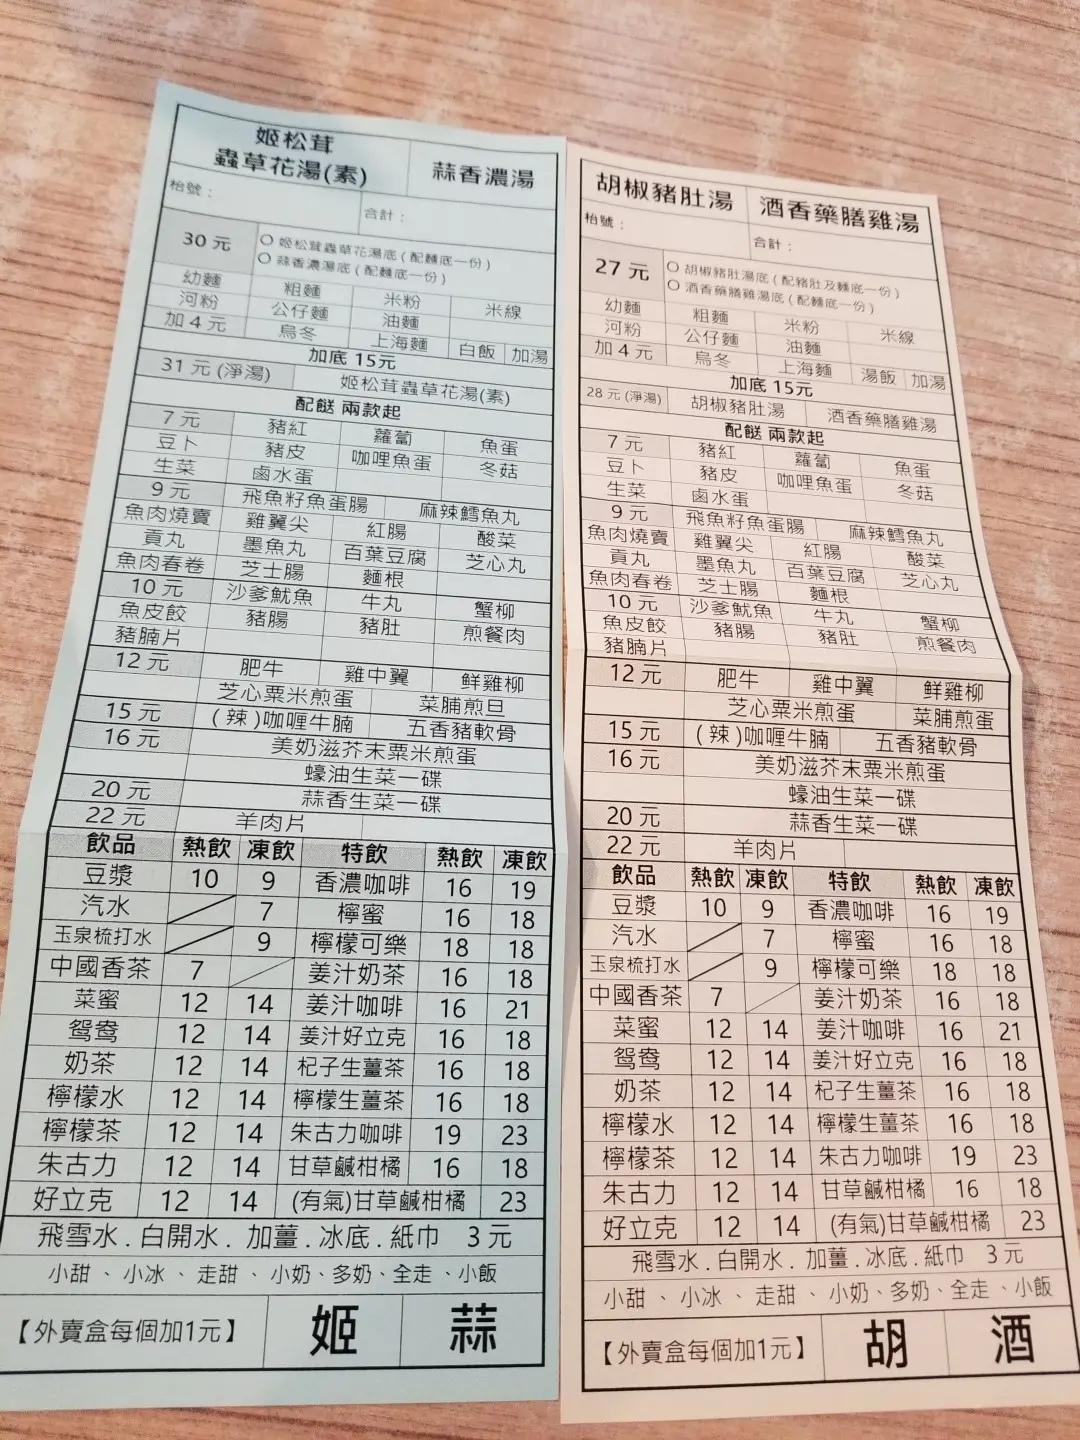 姬松茸
蟲草花湯(素) 蒜香濃湯
枱號：
合計：
30 元 ○ 姬松茸蟲草花湯底 ( 配麵底一份 )
○ 蒜香濃湯底 ( 配麵底一份 )
幼麵 粗麵 米粉 米線
河粉 公仔麵 油麵
加 4 元 烏冬 上海麵 白飯 加湯
加底 15元
31 元 (淨湯) 姬松茸蟲草花湯(素)
配餸 兩款起
7 元 豬紅 蘿蔔 魚蛋
豆卜 豬皮 咖哩魚蛋 冬菇
生菜 鹵水蛋
9 元 飛魚籽魚蛋腸 麻辣鱈魚丸
魚肉燒賣 雞翼尖 紅腸 酸菜
貢丸 墨魚丸 百葉豆腐 芝心丸
魚肉春卷 芝士腸 麵根
10 元 沙爹魷魚 牛丸 蟹柳
魚皮餃 豬腸 豬肚 煎餐肉
豬腩片
12 元 肥牛 雞中翼 鮮雞柳
芝心粟米煎蛋 菜脯煎旦
15 元 ( 辣 )咖喱牛腩 五香豬軟骨
16 元 美奶滋芥末粟米煎蛋
蠔油生菜一碟
20 元 蒜香生菜一碟
22 元 羊肉片
飲品 熱飲 凍飲 特飲 熱飲 凍飲
豆漿 10 9 香濃咖啡 16 19
汽水 7 檸蜜 16 18
玉泉梳打水 9 檸檬可樂 18 18
中國香茶 7 姜汁奶茶 16 18
菜蜜 12 14 姜汁咖啡 16 21
鴛鴦 12 14 姜汁好立克 16 18
奶茶 12 14 杞子生薑茶 16 18
檸檬水 12 14 檸檬生薑茶 16 18
檸檬茶 12 14 朱古力咖啡 19 23
朱古力 12 14 甘草鹹柑橘 16 18
好立克 12 14 (有氣)甘草鹹柑橘 23
飛雪水 . 白開水 . 加薑 . 冰底 . 紙巾 3 元
小甜 、 小冰 、 走甜 、 小奶、多奶、全走 、小飯
【外賣盒每個加1元】 姬 蒜
胡椒豬肚湯 酒香藥膳雞湯
枱號：
合計：
27 元 ○ 胡椒豬肚湯底 ( 配豬肚及麵底一份 )
○ 酒香藥膳雞湯底 ( 配麵底一份 )
幼麵 粗麵 米粉 米線
河粉 公仔麵 油麵
加 4 元 烏冬 上海麵 湯飯 加湯
加底 15元
28 元 (淨湯) 胡椒豬肚湯 酒香藥膳雞湯
配餸 兩款起
7 元 豬紅 蘿蔔 魚蛋
豆卜 豬皮 咖哩魚蛋 冬菇
生菜 鹵水蛋
9 元 飛魚籽魚蛋腸 麻辣鱈魚丸
魚肉燒賣 雞翼尖 紅腸 酸菜
貢丸 墨魚丸 百葉豆腐 芝心丸
魚肉春卷 芝士腸 麵根
10 元 沙爹魷魚 牛丸 蟹柳
魚皮餃 豬腸 豬肚 煎餐肉
豬腩片
12 元 肥牛 雞中翼 鮮雞柳
芝心粟米煎蛋 菜脯煎蛋
15 元 ( 辣 )咖喱牛腩 五香豬軟骨
16 元 美奶滋芥末粟米煎蛋
蠔油生菜一碟
20 元 蒜香生菜一碟
22 元 羊肉片
飲品 熱飲 凍飲 特飲 熱飲 凍飲
豆漿 10 9 香濃咖啡 16 19
汽水 7 檸蜜 16 18
玉泉梳打水 9 檸檬可樂 18 18
中國香茶 7 姜汁奶茶 16 18
菜蜜 12 14 姜汁咖啡 16 21
鴛鴦 12 14 姜汁好立克 16 18
奶茶 12 14 杞子生薑茶 16 18
檸檬水 12 14 檸檬生薑茶 16 18
檸檬茶 12 14 朱古力咖啡 19 23
朱古力 12 14 甘草鹹柑橘 16 18
好立克 12 14 (有氣)甘草鹹柑橘 23
飛雪水 . 白開水 . 加薑 . 冰底 . 紙巾 3 元
小甜 、 小冰 、 走甜 、 小奶、多奶、全走 、小飯
【外賣盒每個加1元】 胡 酒